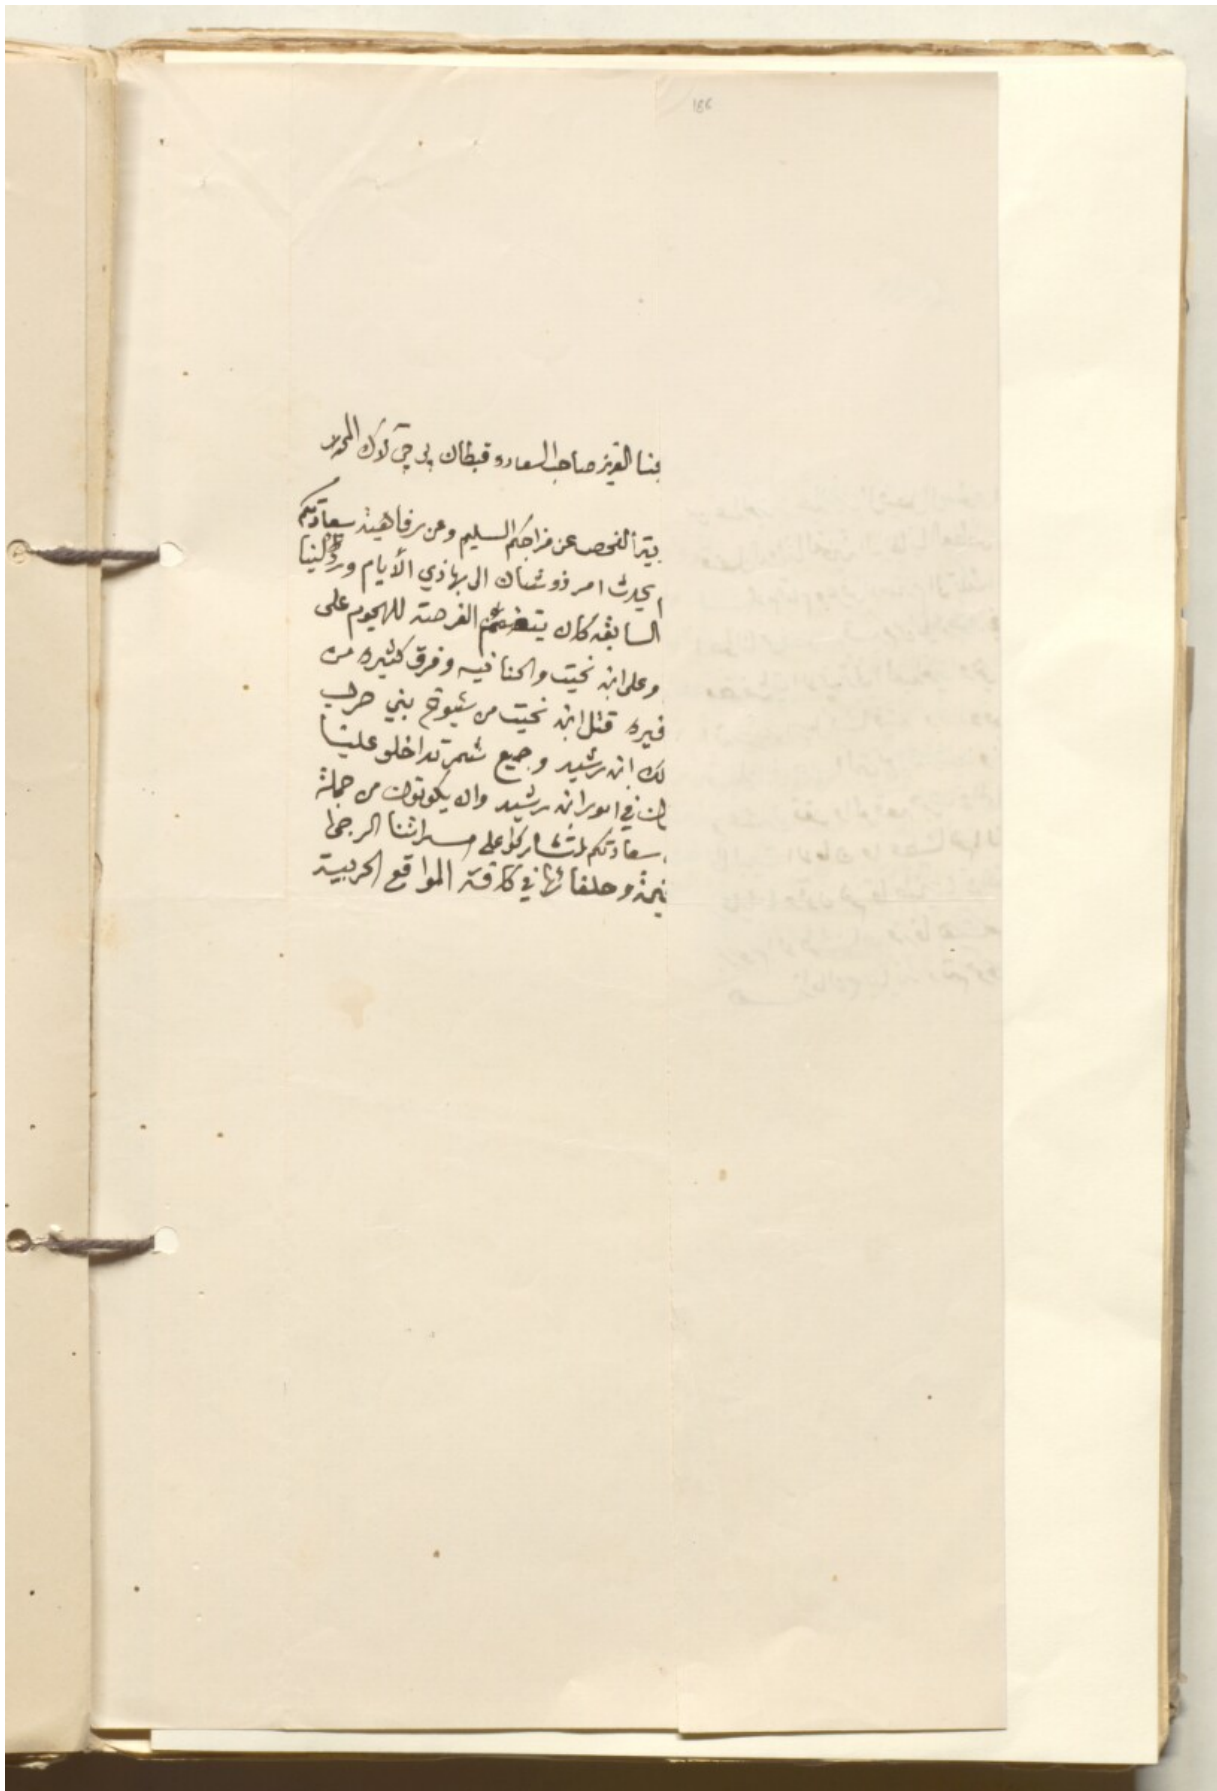 186
بنا العزيز صاحب السعاده قبطان پی چی لوك المحترم
بيترا لفحص عن مزاجكم السليم وعن رفاهية سعادتكم
يحدث امر ذو شئان الى بهاذي الأيام
السابقه كان الفرصة للهجوم على
وعلى ابن نحيت والحنا فيه وفرق كثيره من
فيره قتل ابن نحيت من شيوخ بني حرب
لك ابن رشيد وجميع شمر تداخلو علينا
ان في امور ابن رشيد وان يكونون من جملة
سعادتكم على
وحلفائها في كافة المواقع الحربية